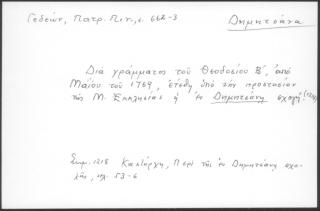 Γεδεών, Πατρ. Πιν., σ. 662-3
Δημητσάνα
Διά γράμματος τοῦ Θεοδοσίου Β', ἀπό
Μαΐου τοῦ 1769, ἐτέθη ὑπό τήν προστασίαν
τῆς Μ. Ἐκκλησίας ἡ ἐν Δημητσάνῃ σχολή! (1218)
Σημ. 1218 Καστόρχη, Περί τῆς ἐν Δημητσάνῃ σχο-
λῆς, σελ. 53-6